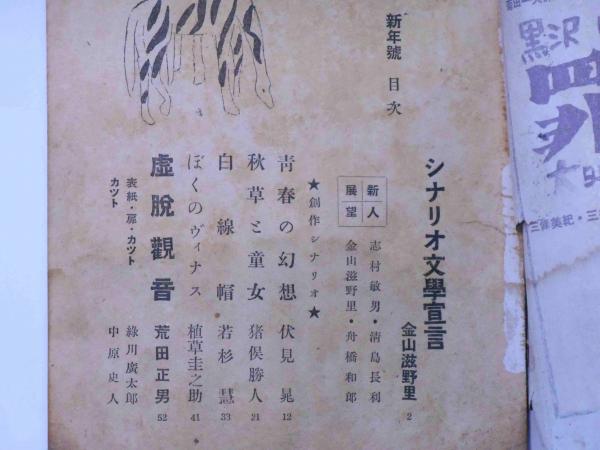 新年號 目次
シナリオ文學宣言 金山滋野里 2
新人展望 志村敏男・清島長利
金山滋野里・舟橋和郎
★創作シナリオ★
青春の幻想 伏見晃 12
秋草と童女 猪俣勝人 21
白線帽 若杉慧 33
ぼくのヴィナス 植草圭之助 41
虛脫觀音 荒田正男 52
表紙・扉・カット 綠川廣太郎
カツト 中原史人
黒沢
罪
三條美紀・三